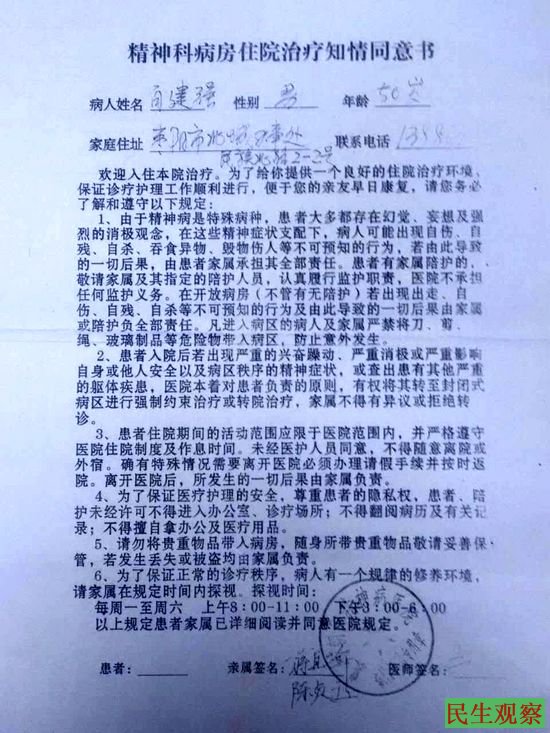 精神科病房住院治疗知情同意书
病人姓名 肖建强 性别 男 年龄 50岁
家庭住址 枣阳市北城办事处 联系电话
2-2号
欢迎入住本院治疗。为了给你提供一个良好的住院治疗环境、
保证诊疗护理工作顺利进行，便于您的亲友早日康复，请您务必
了解和遵守以下规定：
1、由于精神病是特殊病种，患者大多都存在幻觉、妄想及强
烈的消极观念，在这些精神症状支配下，病人可能出现自伤、自
残、自杀、吞食异物、毁物伤人等不可预知的行为，若由此导致
的一切后果，由患者家属承担其全部责任。患者有家属陪护的，
敬请家属及其指定的陪护人员，认真履行监护职责，医院不承担
任何监护义务。在开放病房（不管有无陪护）若出现出走、自
伤、自残、自杀等不可预知的行为及由此导致的一切后果由家属
或陪护负全部责任。凡进入病区的病人及家属严禁将刀、剪、
绳、玻璃制品等危险物带入病区，防止意外发生。
2、患者入院后若出现严重的兴奋躁动、严重消极或严重影响
自身或他人安全以及病区秩序的精神症状，或查出患有其他严重
的躯体疾患，医院本着对患者负责的原则，有权将其转至封闭式
病区进行强制约束治疗或转院治疗，家属不得有异议或拒绝转
诊。
3、患者住院期间的活动范围应限于医院范围内，并严格遵守
医院住院制度及作息时间。未经医护人员同意，不得随意离院或
外宿。确有特殊情况需要离开医院必须办理请假手续并按时返
院。离开医院后，所发生的一切后果由家属负责。
4、为了保证医疗护理的安全，尊重患者的隐私权，患者、陪
护未经许可不得进入办公室、诊疗场所；不得翻阅病历及有关记
录；不得擅自拿办公及医疗用品。
5、请勿将贵重物品带入病房，随身所带贵重物品敬请妥善保
管，若发生丢失或被盗均由家属负责。
6、为了保证正常的诊疗秩序，病人有一个规律的修养环境，
请家属在规定时间内探视。探视时间：
每周一至周六 上午8:00-11:00 下午3:00-6:00
以上规定患者家属已详细阅读并同意医院规定。
患者： 亲属签名： 医师签名
民生观察